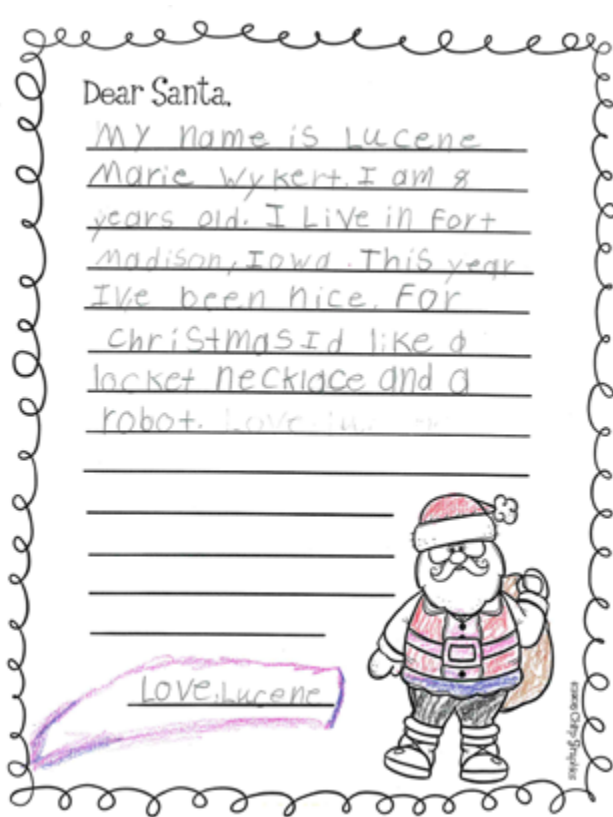 Dear Santa,
My name is Lucene
Marie Wykert. I am 8
years old. I Live in Fort
Madison, Iowa. This year
Ive been nice. For
christmas Id like a
locket necklace and a
robot. Love,
Love, Lucene